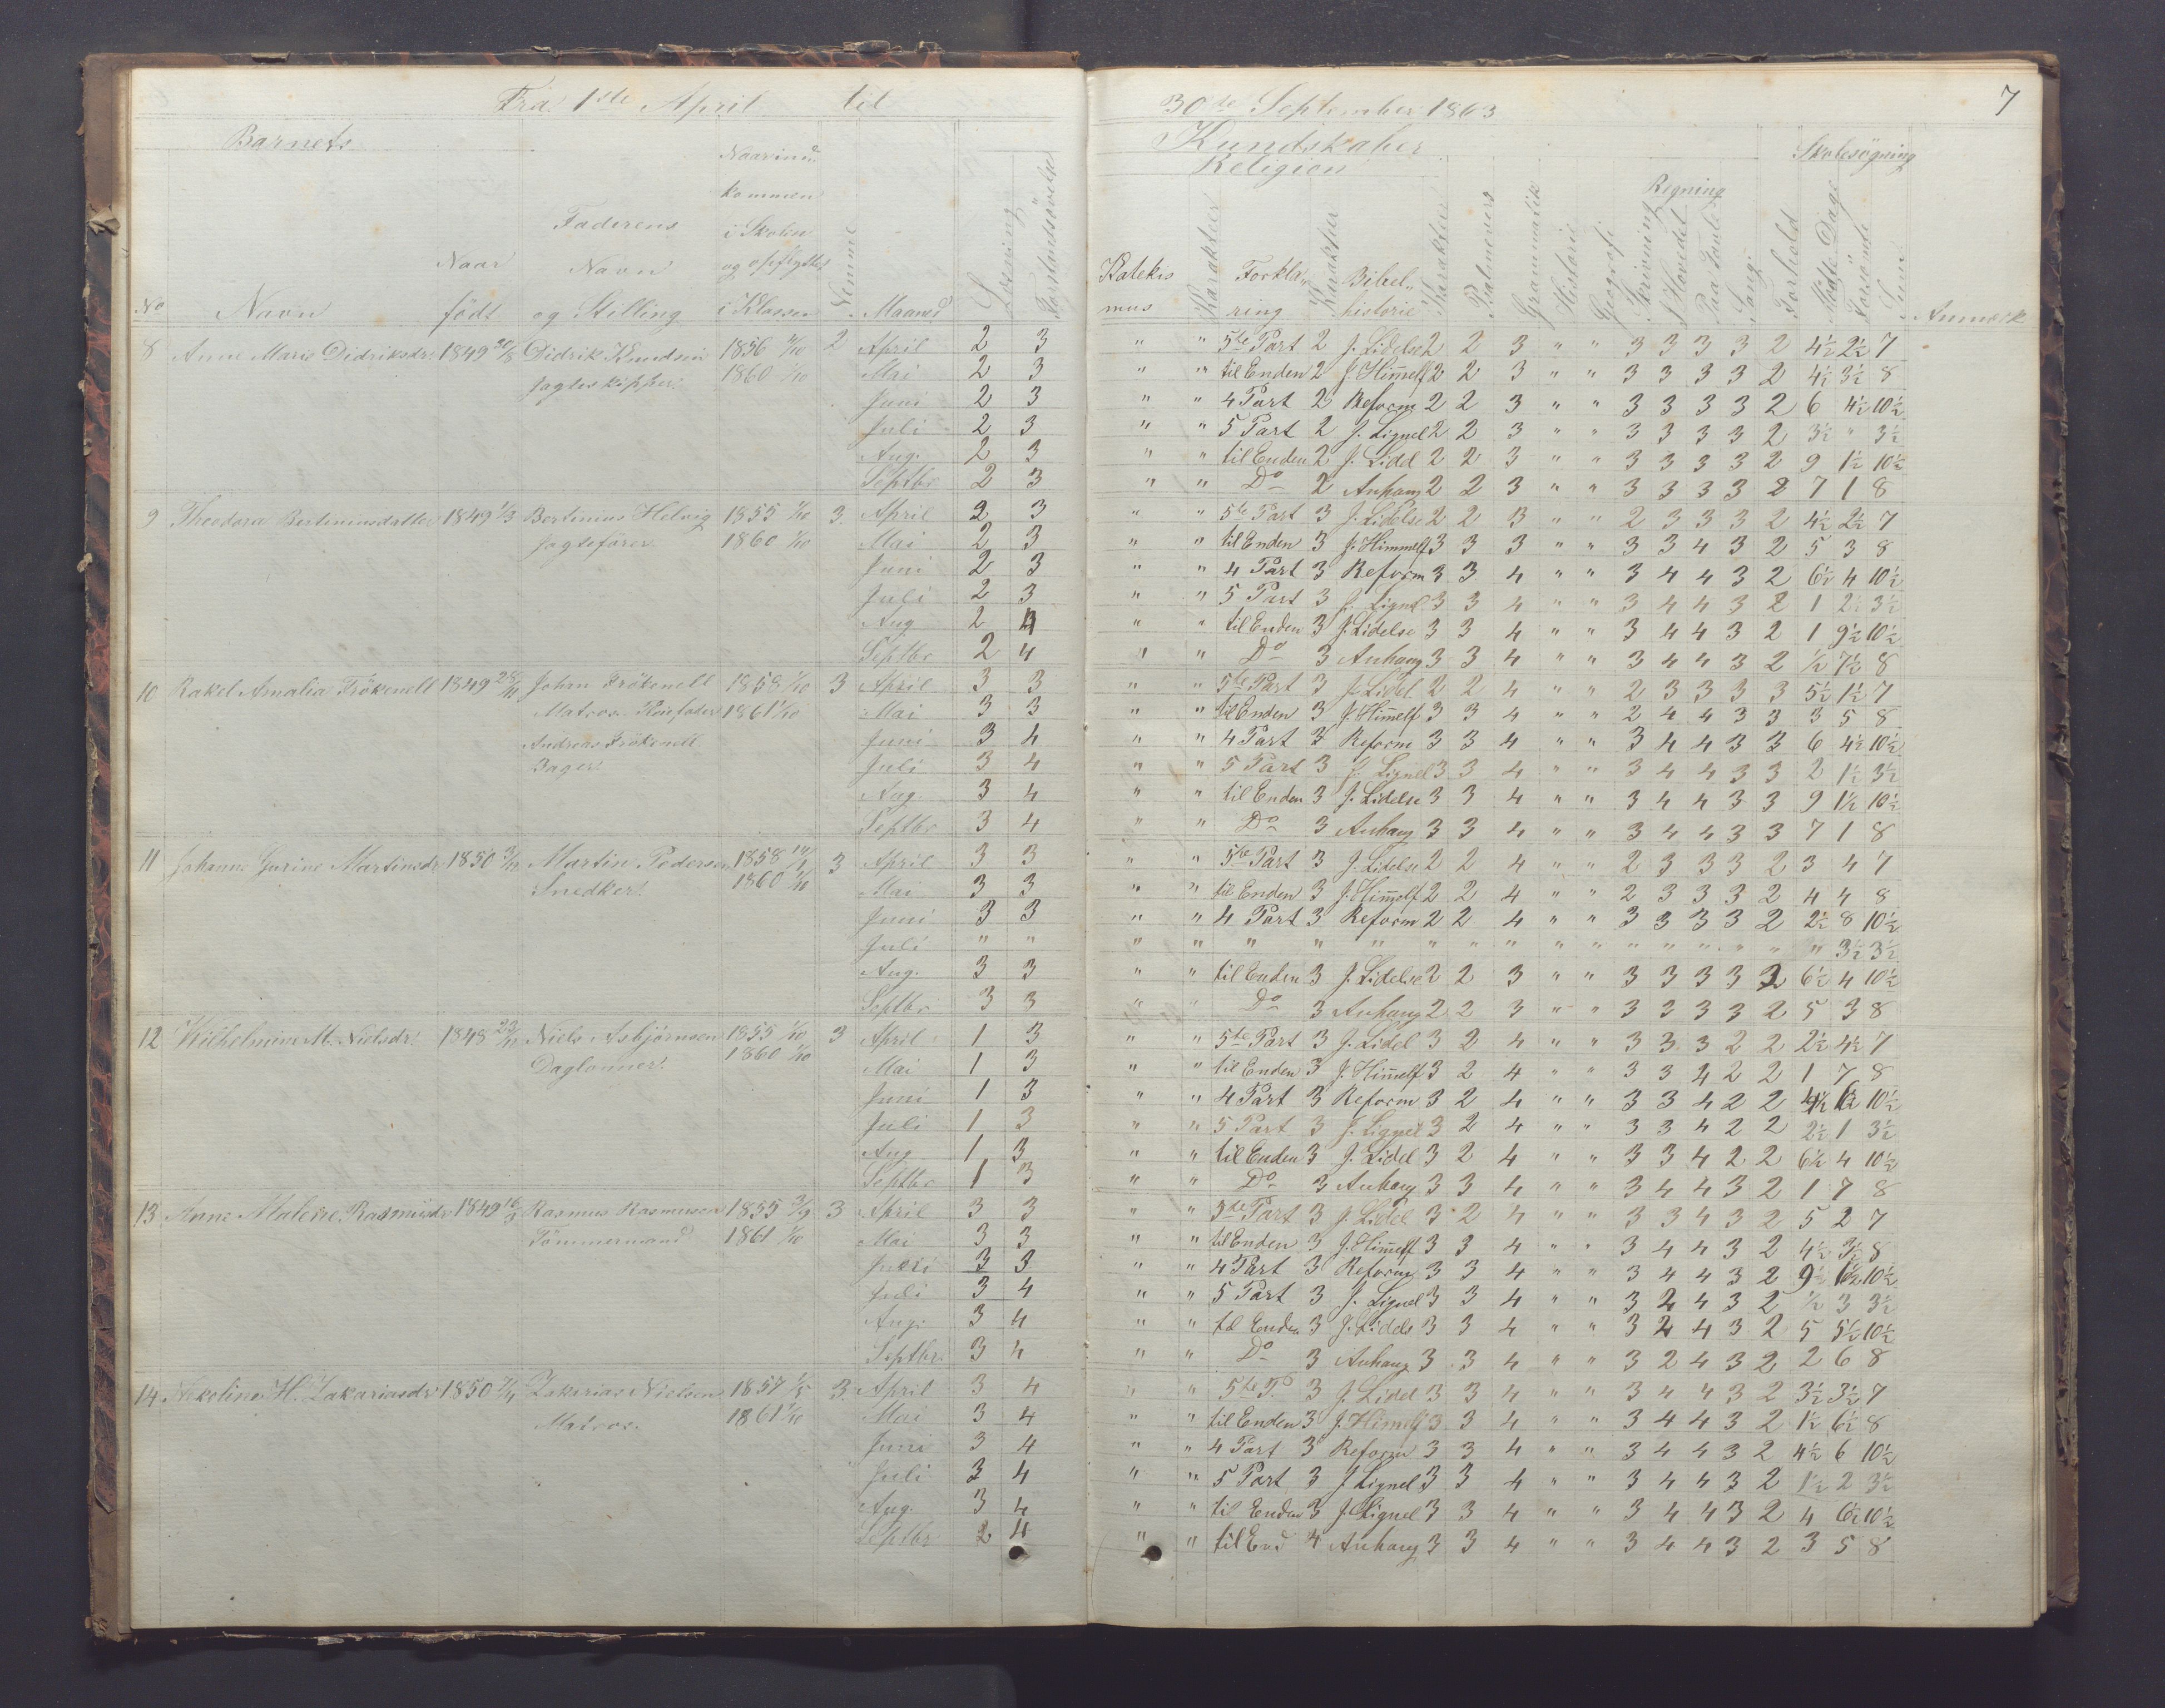 Fra 1ste April til
30te September 1863
7
Barnets
Kundskaber
Religion
Skolesøgning
Regning
No Navn Naar født Faderens Navn og Stilling Naar ind kommen i Skolen og opflyttet i Klassen Nemme Maaned Læsning Forstandsøvelse
Katekismus Karakter Forklaring Karakter Bibelhistorie Karakter Psalmevers Grammatik Historie Geografi Skrivning I Hovedet Paa Tavle Sang Forhold Mødte Dage Forsømte Sum Anmærk
8 Anne Marie Didriksdr 1849 20/8 Didrik Knudsen 1856 1/10 2 April 2 3 " " 5te Part 2 J. Lidelse 2 2 3 " " 3 3 3 3 2 4½ 2½ 7
Jagteskipper 1860 1/10 Mai 2 3 " " til Enden 2 J. Himelf 2 2 3 " " 3 3 3 3 2 4½ 3½ 8
Juni 2 3 " " 4 Part 2 Reform 2 2 3 " " 3 3 3 3 2 6 4½ 10½
Juli 2 3 " " 5 Part 2 J. Lignel 2 2 3 " " 3 3 3 3 2 3½ " 3½
Aug. 2 3 " " til Enden 2 J. Lidel 2 2 3 " " 3 3 3 3 2 9 1½ 10½
Septbr 2 3 " " Do 2 Anhang 2 2 3 " " 3 3 3 3 2 7 1 8
9 Theodora Bertinusdatter 1849 1/3 Bertinius Helvig 1855 1/10 3 April 2 3 " " 5te Part 3 J. Lidelse 2 2 3 " " 2 3 3 3 2 4½ 2½ 7
Jagtefører 1860 1/10 Mai 2 3 " " til Enden 3 J. Himmelf 3 3 3 " " 3 3 4 3 2 5 3 8
Juni 2 3 " " 4 Part 3 Reform 3 3 4 " " 3 4 4 3 2 6½ 4 10½
Juli 2 3 " " 5 Part 3 J. Lignel 3 3 4 " " 3 4 4 3 2 1 2½ 3½
Aug 2 4 " " til Enden 3 J. Lidelse 3 3 4 " " 3 4 4 3 2 1 9½ 10½
Septbr 2 4 " " Do 3 Anhang 3 3 4 " " 3 4 4 3 2 ½ 7½ 8
10 Rakel Amalia Frökenell 1849 28/11 Johan Frökenell 1858 1/10 3 April 3 3 " " 5te Part 3 J. Lidel 2 2 4 " " 2 3 3 3 3 5½ 1½ 7
Matros. Pleiefader 1861 1/10 Mai 3 3 " " til Enden 3 J. Himelf 3 3 4 " " 2 4 4 3 3 3 5 8
Andreas Frökenell Juni 3 4 " " 4 Part 3 Reform 3 3 4 " " 3 4 4 3 3 6 4½ 10½
Bager Juli 3 4 " " 5 Part 3 J. Lignel 3 3 4 " " 3 4 4 3 3 2 1½ 3½
Aug. 3 4 " " til Enden 3 J. Lidelse 3 3 4 " " 3 4 4 3 3 9 1½ 10½
Septbr 3 4 " " Do 3 Anhang 3 3 4 " " 3 4 4 3 3 7 1 8
11 Johanne Gurine Martinsdr 1850 Martin Pedersen 1858 3 April 3 3 " " 5te Part 3 J. Lidelse 2 2 4 " " 2 3 3 3 2 3 4 7
Snedker 1860 1/10 Mai 3 3 " " til Enden 3 J. Himelf 2 2 4 " " 2 3 3 3 2 4 4 8
Juni 3 3 " " 4 Part 3 Reform 2 2 4 " " 3 3 3 3 2 2½ 8 10½
Juli " " " " " " " " " " " " " " " " " " 3½ 3½
Aug. 3 3 " " til Enden 3 J. Lidelse 2 2 3 " " 3 3 3 3 2 6½ 4 10½
Septbr 3 3 " " Do 3 Anhang 2 2 3 " " 3 3 3 3 2 5 3 8
12 Wilhelmine M. Nielsdr 1848 23/11 Niels Asbjørnsen 1855 1/10 3 April 1 3 " " 5te Part 3 J. Lidel 3 2 4 " " 3 3 3 2 2 2½ 4½ 7
Daglønner 1860 1/10 Mai 1 3 " " til Enden 3 J. Himelf 3 2 4 " " 3 3 4 2 2 1 7 8
Juni 1 3 " " 4 Part 3 Reform 3 2 4 " " 3 3 4 2 2 10½
Juli 1 3 " " 5 Part 3 J. Lignel 3 2 4 " " 3 3 4 2 2 2½ 1 3½
Aug 1 3 " " til Enden 3 J. Lidel 3 2 4 " " 3 3 4 2 2 6½ 4 10½
Septbr 1 3 " " Do 3 Anhang 3 3 4 " " 3 4 4 3 2 1 7 8
13 Anne Malene Rasmusdr 1849 16/3 Rasmus Rasmussen 1855 3/9 3 April 3 3 " " 5te Part 3 J. Lidel 3 2 4 " " 3 3 4 3 2 5 2 7
Tømmermand 1861 1/10 Mai 3 3 " " til Enden 3 J. Himelf 3 3 4 " " 3 4 4 3 2 4½ 3½ 8
Juni 3 3 " " 4 Part 3 Reform 3 3 4 " " 3 4 4 3 2 9 1½ 10½
Juli 3 4 " " 5 Part 3 J. Lignel 3 3 4 " " 3 4 4 3 2 ½ 3 3½
Aug. 3 4 " " til Enden 3 J. Lidels 3 3 4 " " 3 4 4 3 2 5 5½ 10½
Septbr. 3 4 " " Do 3 Anhang 3 3 4 " " 3 2 4 3 2 2 6 8
14 Nikoline H. Zakariasdr 1850 Zakarias Nielsen 1857 1/5 3 April 3 4 " " 5te P. 3 J. Lidel 3 3 4 " " 3 4 4 3 2 3½ 3½ 7
Matros. 1861 1/10 Mai 3 4 " " til Enden 3 J. Himelf 3 3 4 " " 3 4 4 3 2 1½ 6½ 8
Juni 3 4 " " 4 Part 3 Reform 3 3 4 " " 3 4 4 3 2 4½ 6 10½
Juli 3 4 " " 5 Part 3 J Lignel 3 3 4 " " 3 4 4 3 2 1½ 2 3½
Aug. 3 4 " " til Enden 3 J. Lignel 3 3 4 " " 3 4 4 3 2 4 6½ 10½
Septbr 2 4 " " til End 4 Anhang 3 3 4 " " 3 4 4 3 2 3 5 8